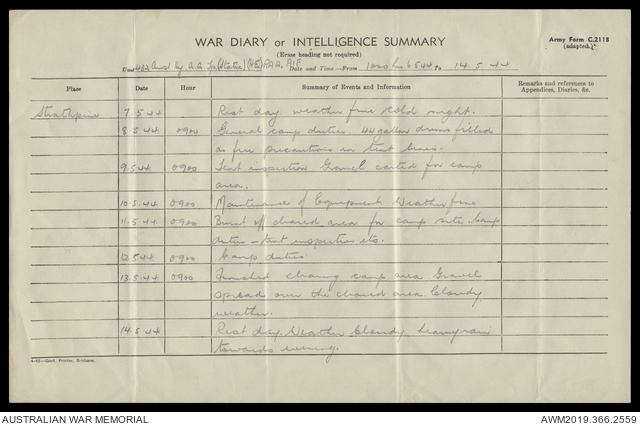 WAR DIARY or INTELLIGENCE SUMMARY
Army Form C.2118
(adapted.)
(Erase heading not required)
Unit 432 Aust Hy A.A. Tp (Static) (HE) RAA, AIF Date and Time—From 7.5.44 To 14.5.44
Place Date Hour Summary of Events and Information Remarks and references to
Appendices, Diaries, &c.
Strathpine 7.5.44 Rest day. weather fine cold night.
8.5.44 0900 General camp duties. 44 gallon drums filled
as fire precautions in tent lines.
9.5.44 0900. Tent inspection Gravel carted for camp
area.
10.5.44 0900 Maintenance of Equipment Weather fine
11.5.44 0900 Burnt off cleared area for camp site. Camp
duties – tent inspection etc.
12.5.44 0900 Camp duties
13.5.44 0900 Finished clearing camp area Gravel
spread over the cleared area. Cloudy
weather.
14.5.44 Rest day. Weather Cloudy. rain
towards evening.
Govt. Printer, Brisbane.
AUSTRALIAN WAR MEMORIAL AWM2019.366.2559